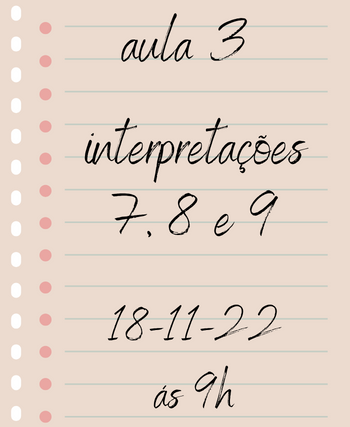 aula 3
interpretações
7, 8 e 9
18-11-22
ás 9h